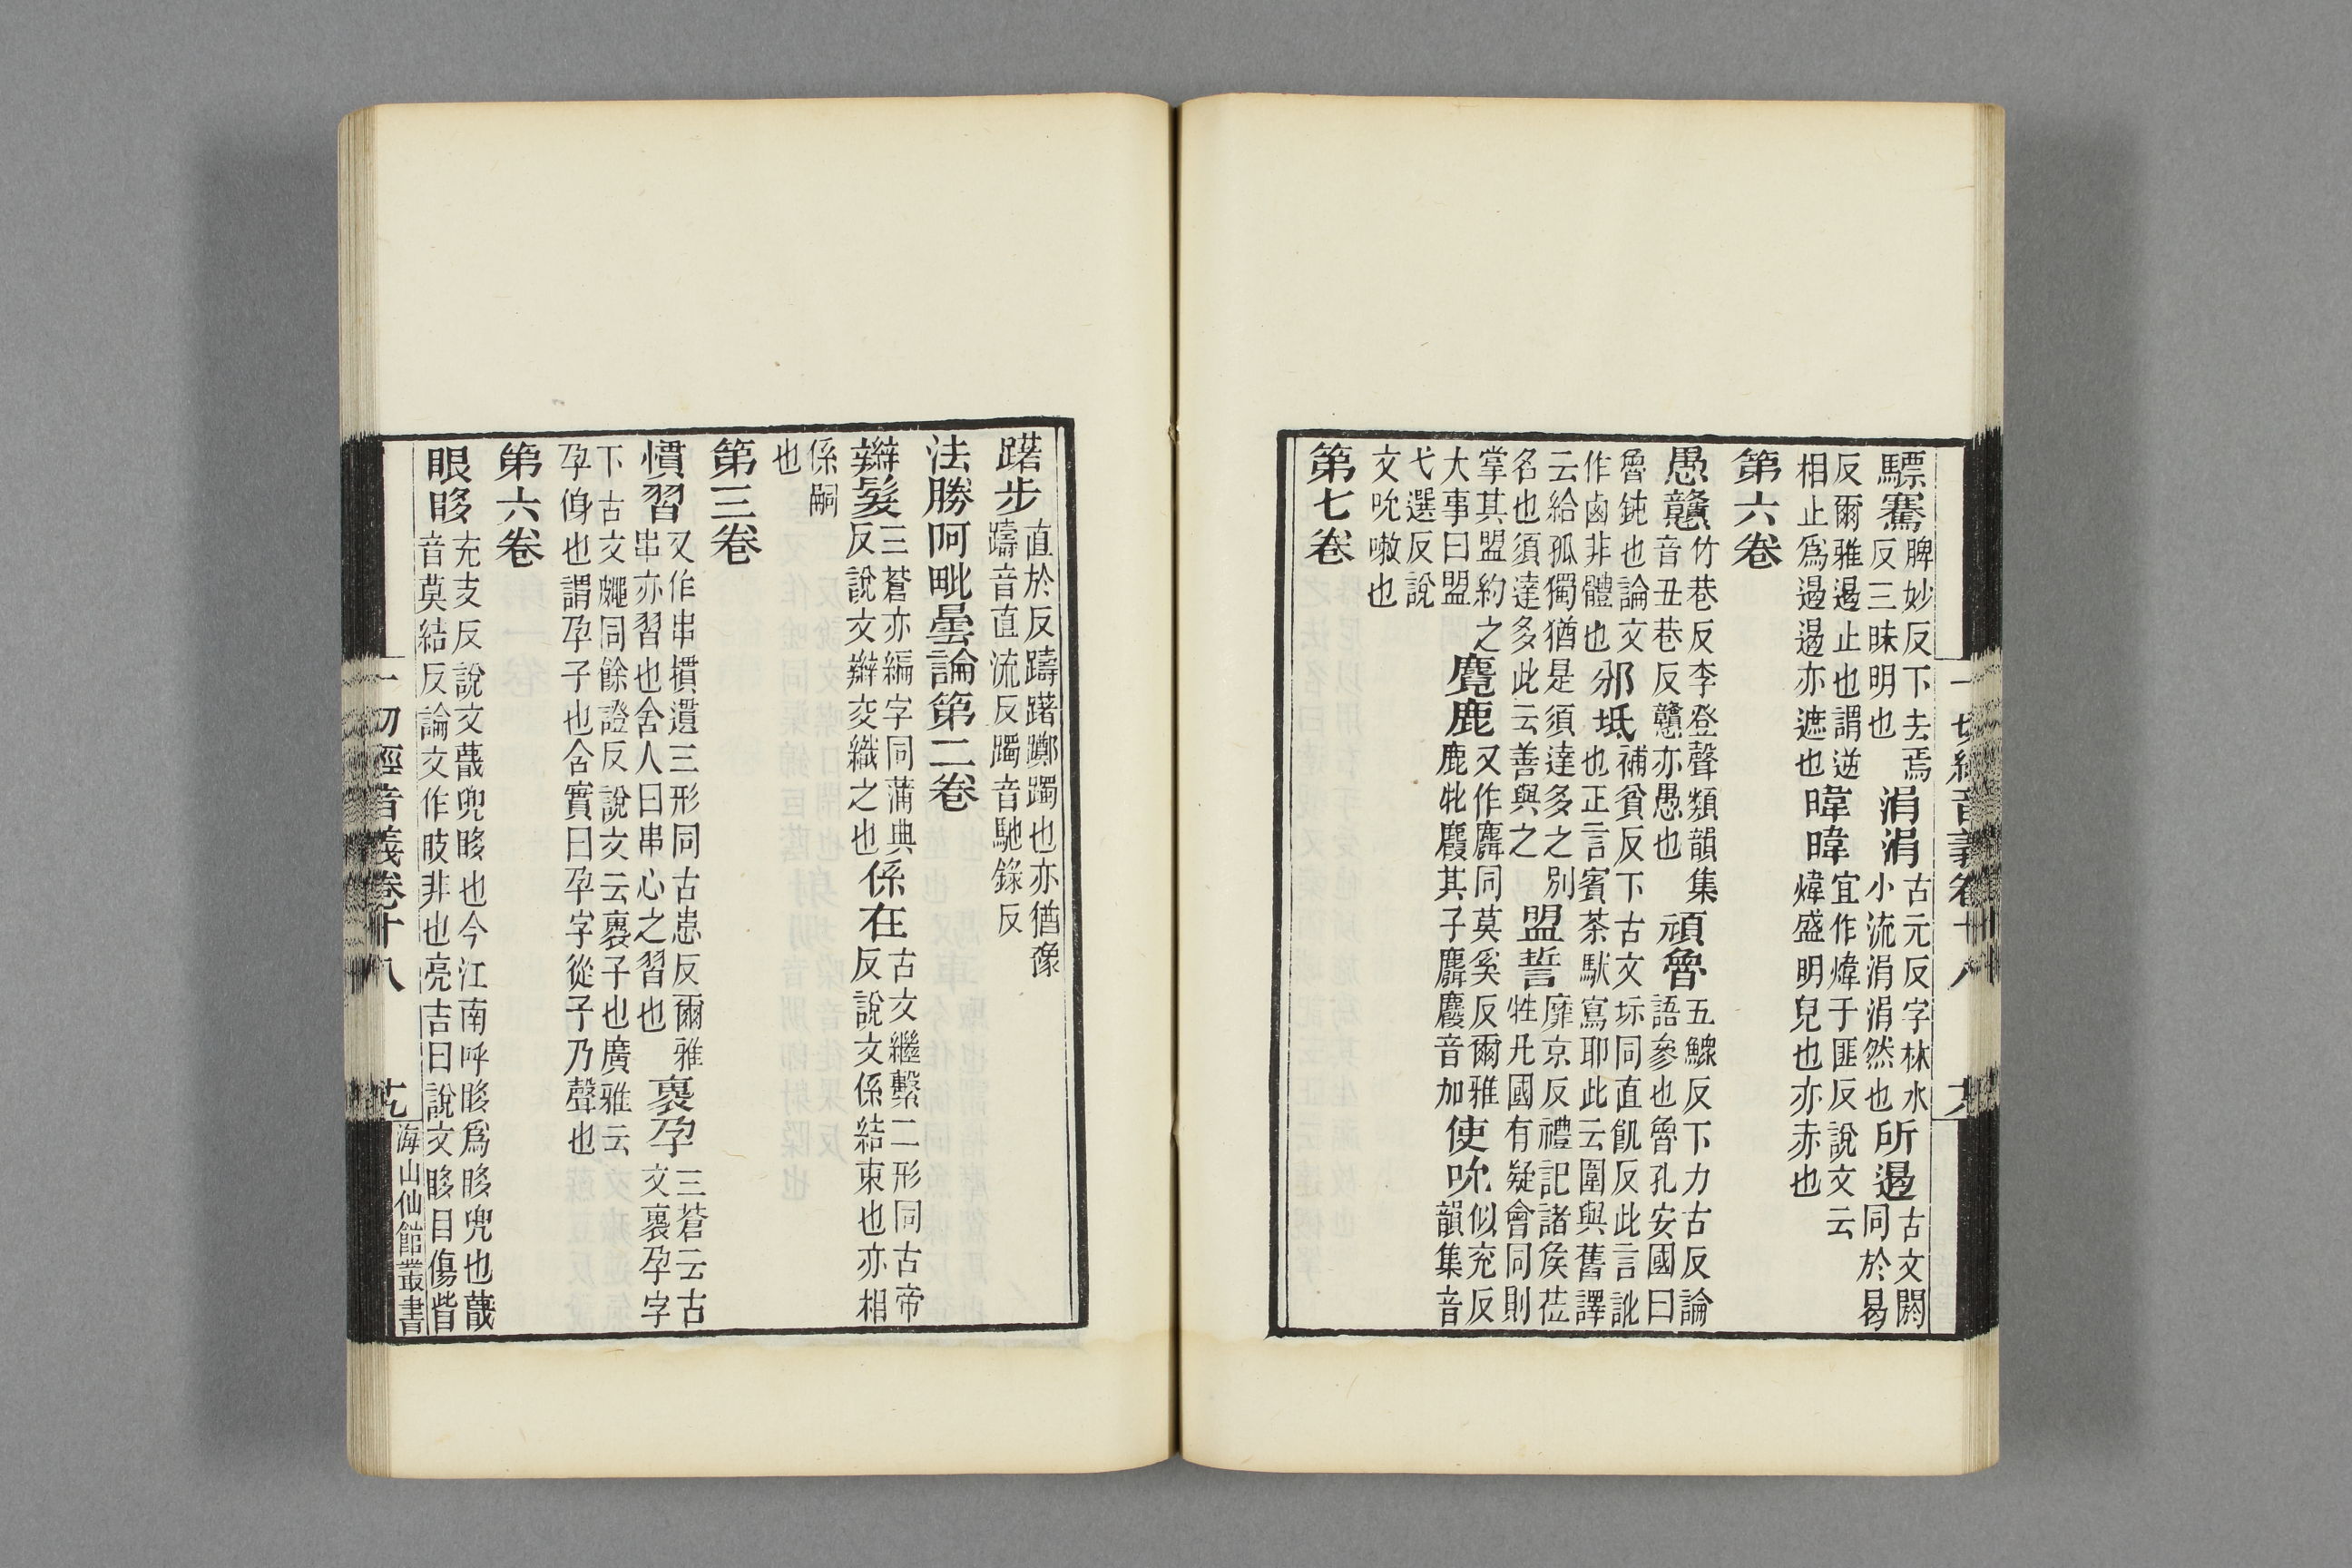 驃騫脾妙反下去焉反三昧明也涓涓古元反字林水小流涓涓然也所遏古文閼同於曷
反爾雅遏止也謂逆相止為遏遏亦遮也暐暐宜作煒于匪反說文云煒盛明皃也亦赤也
第六卷
愚戇竹巷反李登聲類韻集音丑巷反戇亦愚也頑魯五鰥反下力古反論語參也魯孔安國曰
魯鈍也論文作鹵非體也邠坻補貧反下古文坘同直飢反此言訛也正言賓荼馱寫耶此云圍與舊譯
云給孤獨猶是須達多之別名也須達多此云善與之盟誓靡京反禮記諸侯莅牲凡國有疑會同則
掌其盟約之大事曰盟麑鹿又作麛同莫奚反爾雅鹿牝麚其子麛麚音加使吮似兖反韻集音
弋選反說文吮嗽也
第七卷
一切經音義卷十八
躇步直於反躊躇躑躅也亦猶豫躊音直流反躅音馳錄反
法勝阿毗曇論第二卷
辮髮三蒼亦編字同蒲典反說文辮交織之也係在古文繼繫二形同古帝反說文係結束也亦相
係嗣也
第三卷
慣習又作串摜遺三形同古患反爾雅串亦習也舍人曰串心之習也裹孕三蒼云古文裹孕字
下古文同餘證反說文云裹子也廣雅云孕㑗也謂孕子也含實曰孕字從子乃聲也
第六卷
眼眵充支反說文䁾兜眵也今江南呼眵為眵兜也䁾音莫結反論文作䀝非也亮吉曰說文眵目傷眥
一切經音義卷十八
海山仙館叢書